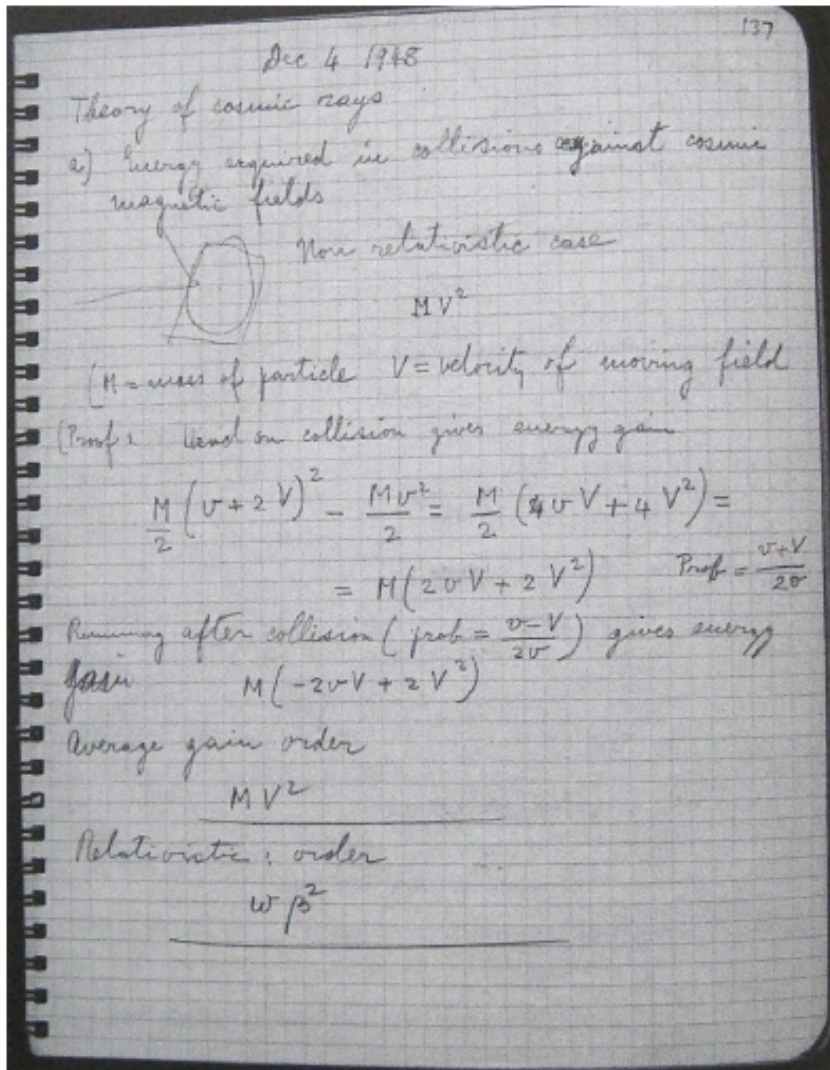 137
Dec 4 1948
Theory of cosmic rays
a) Energy acquired in collisions against cosmic
magnetic fields
Non relativistic case
MV²
(M = mass of particle V = velocity of moving field
(Proof: Head on collision gives energy gain
M/2 (v + 2V)² - Mv²/2 = M/2 (4vV + 4V²) =
= M(2vV + 2V²) Prob = (v+V)/2v
Running after collision (prob = (v-V)/2v) gives energy
gain M(-2vV + 2V²)
Average gain order
MV²
Relativistic: order
wβ²